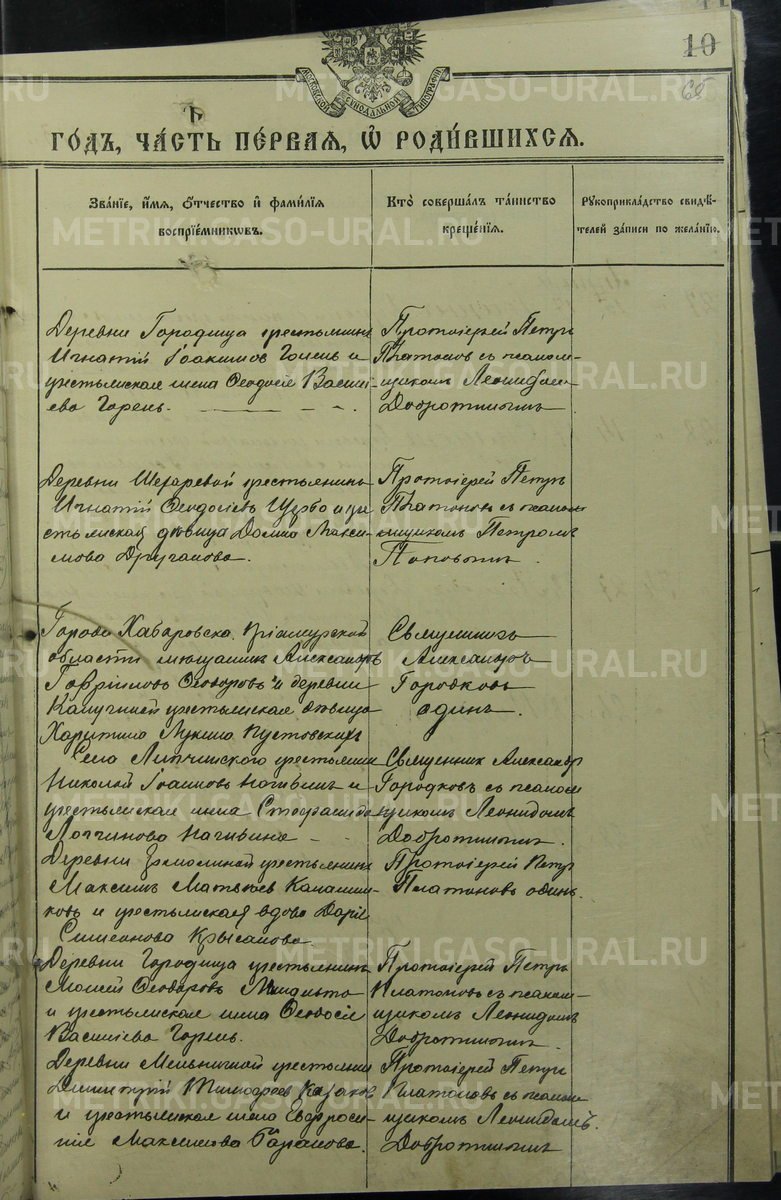 10
65
МОСКОВСКОЙ СѴНОДАЛЬНОЙ ТИПОГРАФІИ
ГОДЪ, ЧАСТЬ ПЕРВАЯ, Ѡ РОДИВШИХСЯ.
Званіе, имя, отчество и фамилія
воспріемниковъ.
Кто совершалъ таинство
крещенія.
Рукоприкладство свидѣ-
телей записи по желанію.
Деревни Городища крестьянинъ
Игнатій Іоакимовъ Горенъ и
крестьянская жена Ѳеодосія Васи-
ева Горенъ.
Протоіерей Петръ
Платоновъ съ псалом-
щикомъ Леонидомъ
Добротинымъ
Деревни крестьянинъ
Игнатій Ѳеодосіевъ и кре
стьянская дѣвица Домна Макси-
мова Друганова.
Протоіерей Петръ
Платоновъ съ псалом
щикомъ Петромъ
Поповымъ
Города Хабаровска Приамурской
области мѣщанинъ Александръ
Гавріиловъ Ѳеодоровъ и деревни
крестьянская дѣвица
Харитина Лукина Пустовскихъ
Священникъ
Александръ
Городковъ
одинъ.
Села Липчинскаго крестьянинъ
Николай Іоанновъ Нагибинъ и
крестьянская жена
Логгинова Нагибина
Священник Александръ
Городковъ съ псалом
щикомъ Леонидомъ
Добротинымъ.
Деревни Ермолиной крестьянинъ
Максимъ Матвѣевъ
ковъ и крестьянская вдова Дарія
Симеонова Крысанова.
Протоіерей Петр
Платоновъ одинъ.
Деревни Городища крестьянинъ
Моисей Ѳеодоровъ
и крестьянская жена Ѳеодосія
Василіева Горенъ.
Протоіерей Петръ
Платоновъ съ псалом-
щикомъ Леонидомъ
Добротинымъ.
Деревни Мельничной крестьянин
Димитрій Тимоѳеев Казаков
и крестьянская жена Евфроси-
нія Максимова Баранова.
Протоіерей Петръ
Платоновъ съ псалом
щикомъ Леонидомъ.
Добротинымъ
METRIKI.GASO-URAL.RU